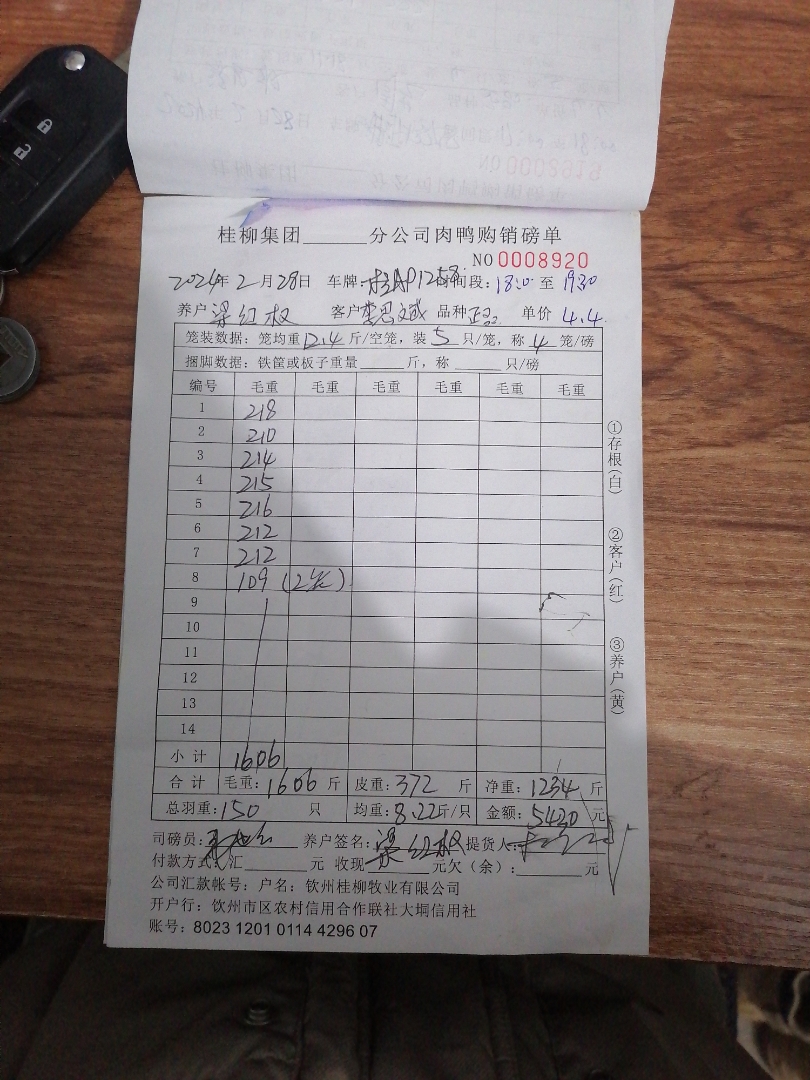 桂柳集团______分公司肉鸭购销磅单
NO 0008920
2024年 2月 28日 车牌:桂AP1258 时间段:18:0 至 1930
养户 梁红权 客户 李思斌 品种 正品 单价 4.4
笼装数据:笼均重 12.4 斤/空笼,装 5 只/笼,称 4 笼/磅
捆脚数据:铁筐或板子重量______斤,称______只/磅
编号 毛重 毛重 毛重 毛重 毛重 毛重
1 218
2 210
3 214
4 215
5 216
6 212
7 212
8 109 (2笼)
9
10
11
12
13
14
小计 1606
合计 毛重:1606 斤 皮重:372 斤 净重:1234 斤
总羽重:150 只 均重:8.22斤/只 金额:5430 元
司磅员: 养户签名:梁红权 提货人:
付款方式:汇______元 收现______元欠(余):______元
公司汇款帐号:户名:钦州桂柳牧业有限公司
开户行:钦州市区农村信用合作联社大垌信用社
账号:8023 1201 0114 4296 07
①存根(白)
②客户(红)
③养户(黄)